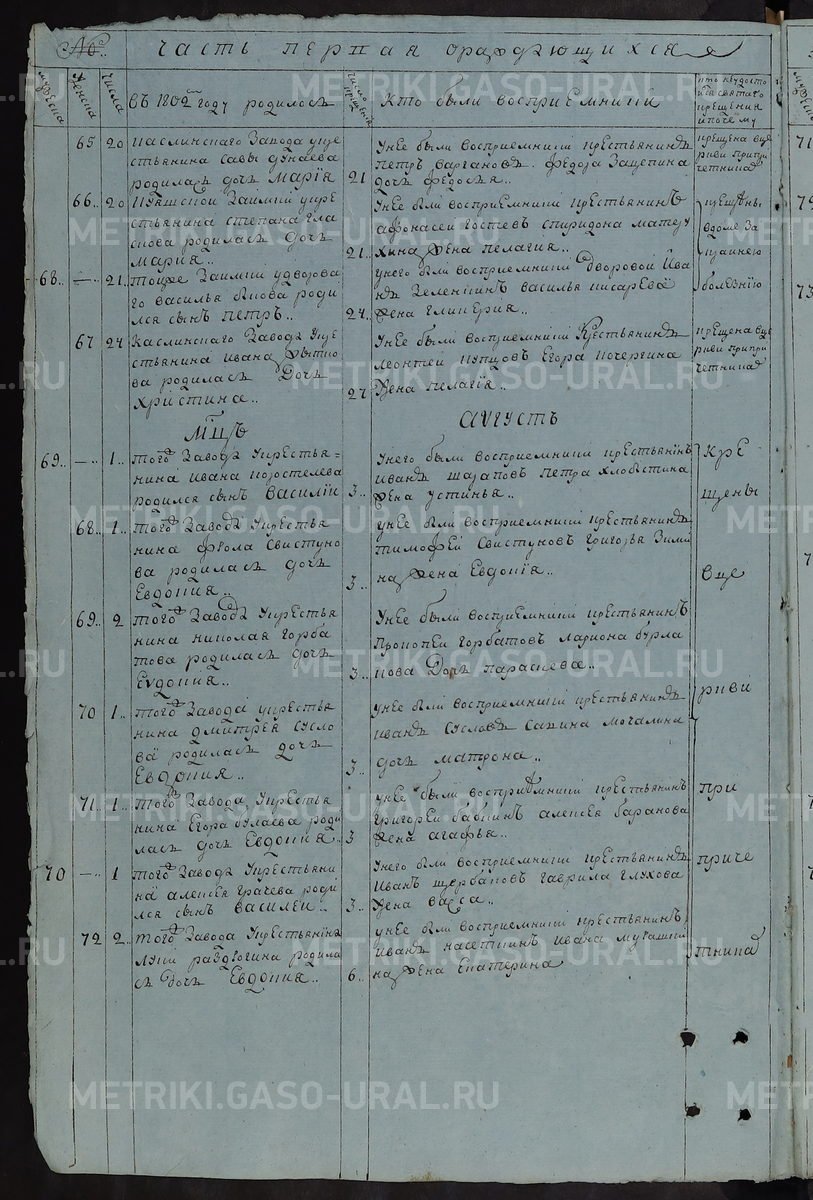 № часть первая ораждающихся
мужеска женска числа въ 1802 году родилося число крещения кто были восприемники
65 20 каслинскаго завода укре
стьянина савы дунаева
родиласъ дочъ мария
21 унее были восприемники крестьянинъ
петръ вагановъ федора защепина
дочъ федосья
крещена вце
ркви при при
четниках
66 20 заимки укре
стьянина степана гла
кова родиласъ дочъ
мария
21 унее были восприемники крестьянинъ
афонасеи гостевъ спиридона
жена пелагия
крещены
вдоме за
болезнию
68 21 тоиже заимки удворова
го василья быкова роди
лся сынъ петръ
24 унего были восприемники дворовои ива
нъ зеленкинъ василья писарева
жена гликерия
67 24 каслинскаго завода укре
стьянина ивана
ва родиласъ дочъ
христина
27 унее были восприемники крестьянинъ
леонтеи купцовъ егора кочергина
жена пелагия
крещена вце
ркви при при
четниках
мцъ августъ
69 1 того завода укрестья
нина ивана коростелева
родился сынъ василии
3 унего были восприемники крестьянинъ
иванъ шараповъ петра хлобыстина
жена устинья
68 1 того завода укрестья
нина фрола свистуно
ва родиласъ дочъ
евдокия
3 унее были восприемники крестьянинъ
тимофеи свистуновъ григорья зими
на жена евдокия
69 2 того завода укрестья
нина николая горба
това родиласъ дочъ
евдокия
3 унее были восприемники крестьянинъ
прокопеи горбатовъ лариона бурла
кова дочъ параскева
70 1 того завода укрестья
нина дмитрея сусло
ва родиласъ дочъ
евдокия
3 унее были восприемники крестьянинъ
иванъ сусловъ савина мочалина
дочъ матрона
71 1 того завода укрестья
нина егора булаева роди
ласъ дочъ евдокия
3 унее были восприемники крестьянинъ
григореи бабкинъ алексея баранова
жена агафья
70 1 того завода укрестьяни
на алексея грачева роди
лся сынъ василеи
3 унего были восприемники крестьянинъ
иванъ щербаковъ гаврила глухова
жена васса
72 2 того завода укрестьянина
луки раздрогина родила
съ дочъ евдокия
6 унее были восприемники крестьянинъ
иванъ касеткинъ ивана мурашки
на жена екатерина
кре
щены
вце
ркви
при
приче
тниках
71
72
73
METRIKI.GASO-URAL.RU